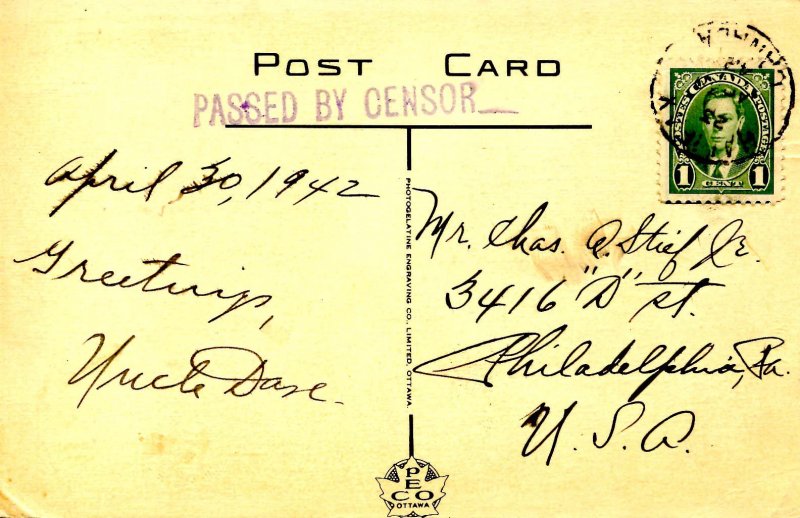 POST CARD
PASSED BY CENSOR
April 30, 1942
Greetings,
Uncle Dave.
Mr. Chas. A. Stief Jr.
3416 "D" St.
Philadelphia, Pa.
U. S. A.
POSTES CANADA POSTAGE
1 CENT 1
PHOTOGELATINE ENGRAVING CO., LIMITED, OTTAWA.
PECO
OTTAWA